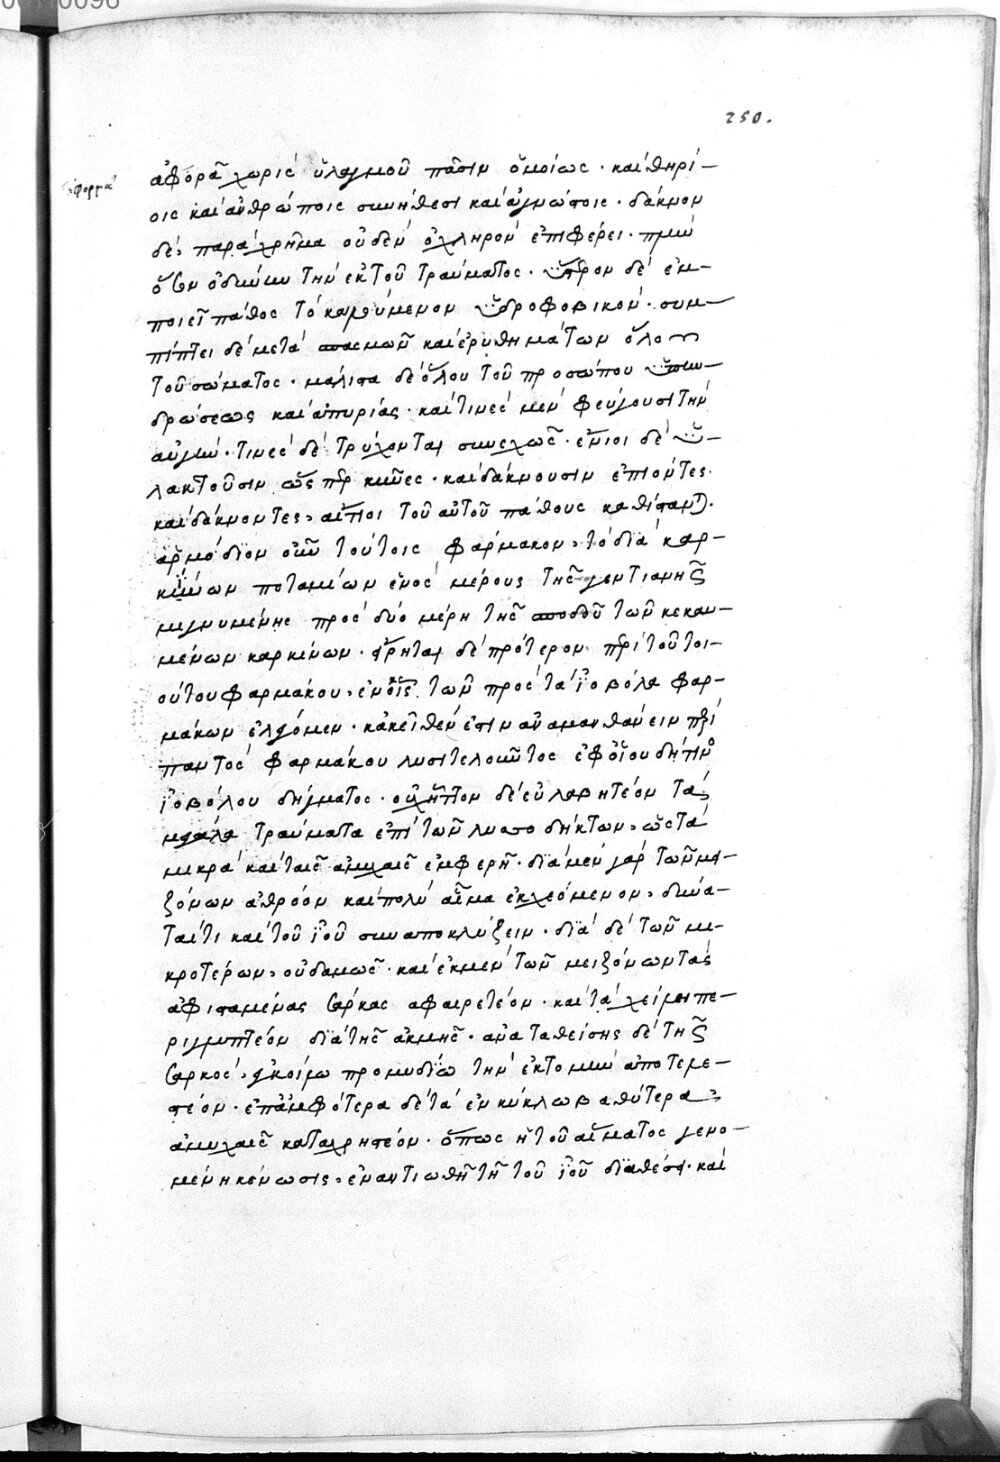 250.
ἀφορᾶ χωρὶς ὑλαγμοῦ πᾶσιν ὁμοίως · καὶ θηρί-
οις καὶ ἀνθρώποις συνήθεσι καὶ ἀγνώτοις · δάκνον
δὲ, παραχρῆμα οὐδὲν ὀχληρὸν ἐπιφέρει · πλὴν
ὅσον ὀδύνην τὴν ἐκ τοῦ τραύματος · ὕστερον δὲ ἐμ-
ποιεῖ πάθος τὸ καλούμενον ὑδροφοβικόν · συμ-
πίπτει δὲ μετὰ σπασμῶν καὶ ἐρυθημάτων ὅλου
τοῦ σώματος · μάλιστα δὲ ὅλου τοῦ προσώπου
δρώσεως καὶ ἀπορίας · καὶ τινὲς μὲν φεύγουσι τὴν
αὐγήν · τινὲς δὲ τρύχονται συνεχῶς · ἔνιοι δὲ ὑ-
λακτοῦσιν ὥσπερ κύνες · καὶ δάκνουσιν ἐπιόντες
καὶ δάκνοντες, αἴτιοι τοῦ αὐτοῦ πάθους καθίσταντ(αι) ·
ἁρμόδιον οὖν τούτοις φάρμακον, τὸ διὰ καρ-
κίνων ποταμίων ἑνὸς μέρους τῆς γεντιανῆς
μιγνυμένης πρὸς δύο μέρη τῆς σποδοῦ τῶν κεκαυ-
μένων καρκίνων · εἴρηται δὲ πρότερον περὶ τοῦ τοι-
ούτου φαρμάκου, ἐν οἷς τῶν πρὸς τὰ ἰοβόλα φαρ-
μάκων ἐλέγομεν · κἀκεῖθεν ἔστιν ἀναμανθάνειν περὶ
παντὸς φαρμάκου λυσιτελοῦντος ἐφ' οἵου δήτινος
ἰοβόλου δήγματος · οὐχ ἧττον δὲ εὐλαβητέον τὰ
μεγάλα τραύματα ἐπὶ τῶν λυσσοδήκτων, ὡς τὰ
μικρὰ καὶ ταῖς ἀμυχαῖς ἐμφερῆ · διὰ μὲν γὰρ τῶν μει-
ζόνων ἀθρόον καὶ πολὺ αἷμα ἐκχεόμενον, δύνα-
ταί τι καὶ τοῦ ἰοῦ συναποκλύζειν · διὰ δὲ τῶν μι-
κροτέρων, οὐδαμῶς · καὶ ἐκ μὲν τῶν μειζόνων τὰς
ἀφισταμένας σάρκας ἀφαιρετέον · καὶ τὰ χείλη πε-
ριγλυπτέον διὰ τῆς ἀκμῆς · ἀναταθείσης δὲ τῆς
σαρκὸς, ἀγκοίρω προμυδίω τὴν ἐκτομὴν ἀποτεμε-
στέον · ἐπ' ἀμφότερα δὲ τὰ ἐν κύκλω βαθύτερα
ἀμυχαῖς καταχρηστέον · ὅπως ἡ τοῦ αἵματος γενο-
μένη κένωσις, ἐναντιωθῆ τῆ τοῦ ἰοῦ διαθέσει · καὶ